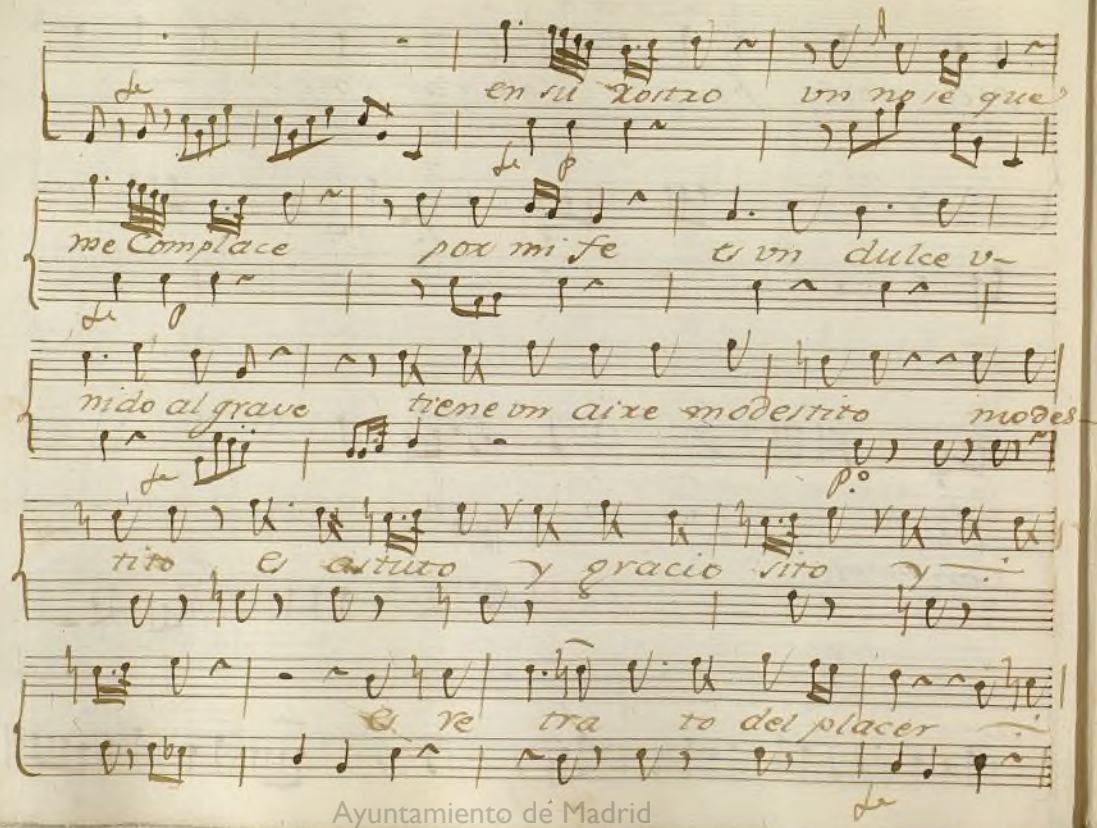 en su rostro vn no se que
me Complace por mi fe es vn dulce v-
nido al grave tiene vn aire modestito modes-
tito es astuto y gracio sito y
es re tra to del placer
Ayuntamiento de Madrid